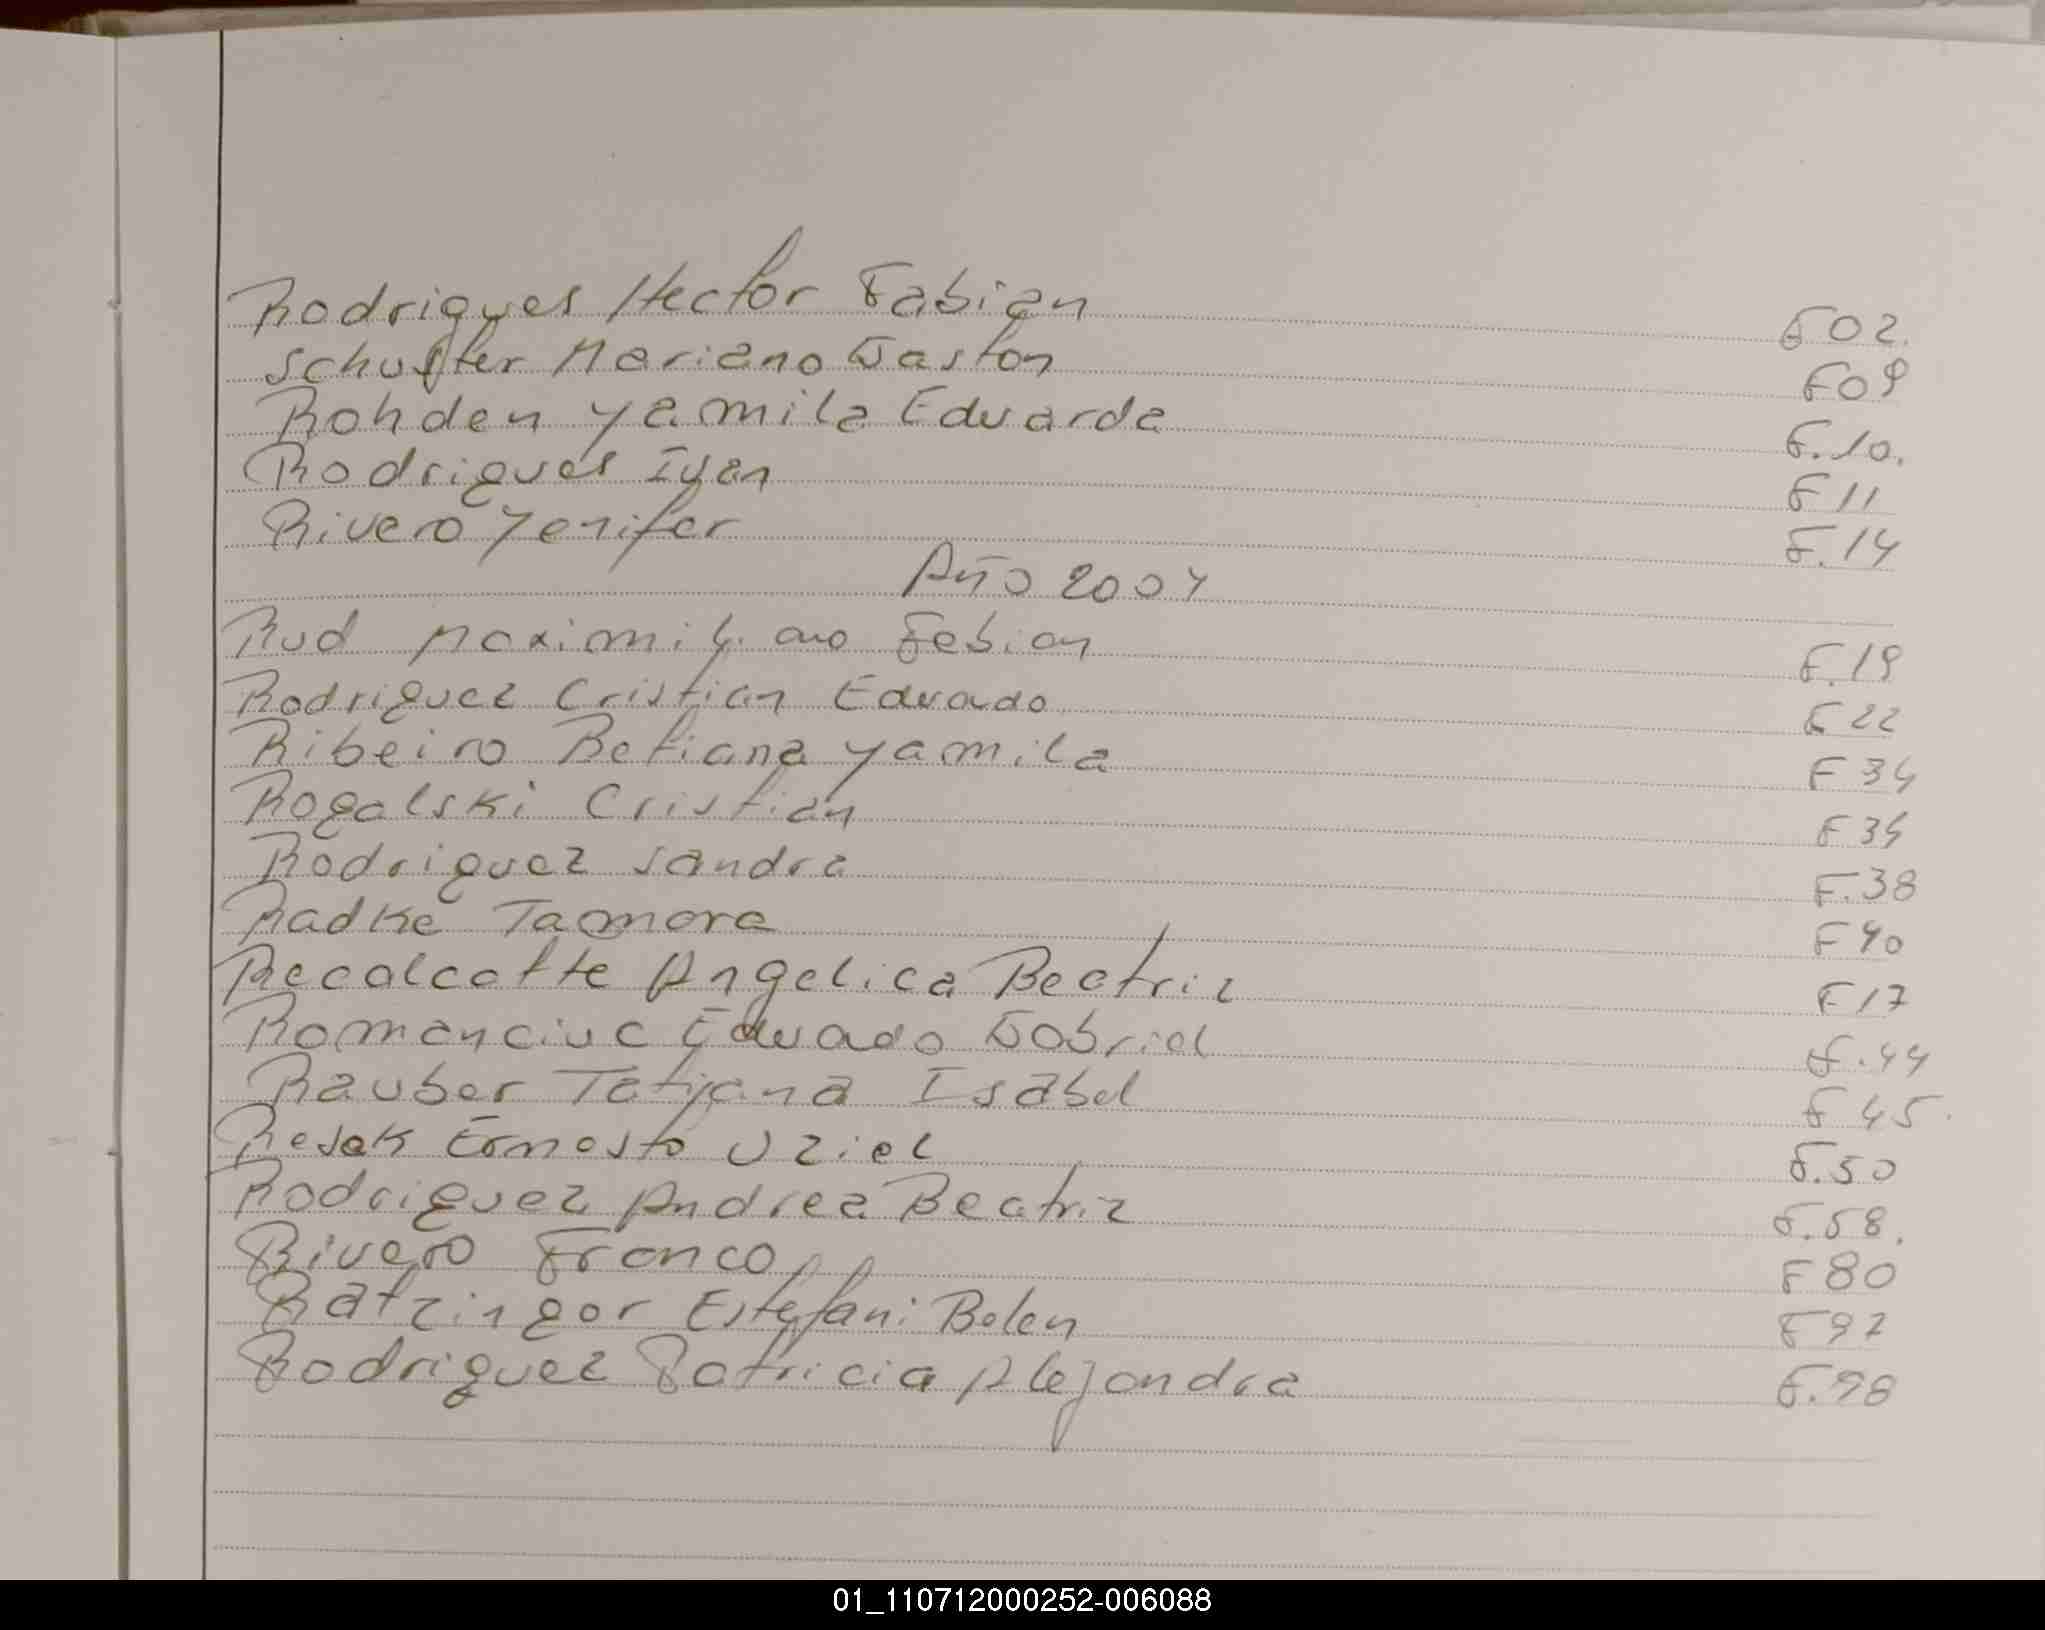 Rodrigues Hector Fabian F02.
Schuster Mariano Gaston F09
Rohden Yamila Eduarda F.10.
Rodrigues Ivan F11
Rivero Yenifer F.14
Año 2004
Rud Maximiliano Fabian F.19
Rodriguez Cristian Eduardo F22
Ribeiro Betiana Yamila F34
Rogalski Cristian F34
Rodriguez Sandra F.38
Radke Tamara F40
Recalcatte Angelica Beatriz F17
Romanciuc Eduardo Gabriel F.44
Rauber Tatjana Isabel F45
Resek Ernesto Uziel F.50
Rodriguez Andrea Beatriz F.58.
Rivero Franco F80
Ratzinger Estefani Belen F97
Rodriguez Patricia Alejandra F.98
01_110712000252-006088